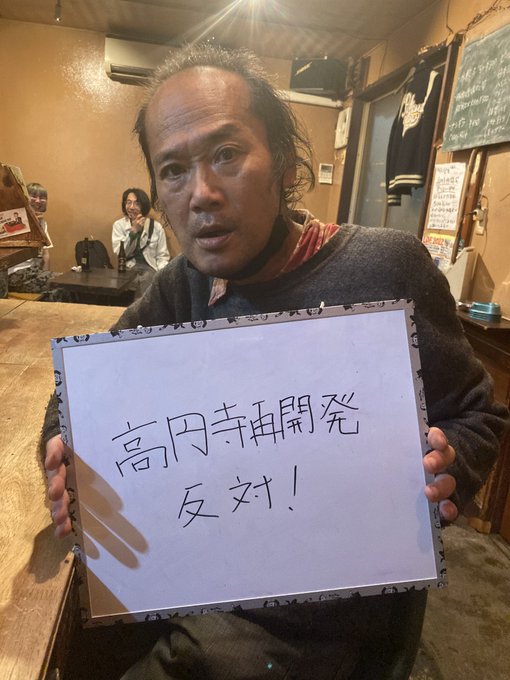 高円寺再開発
反対！